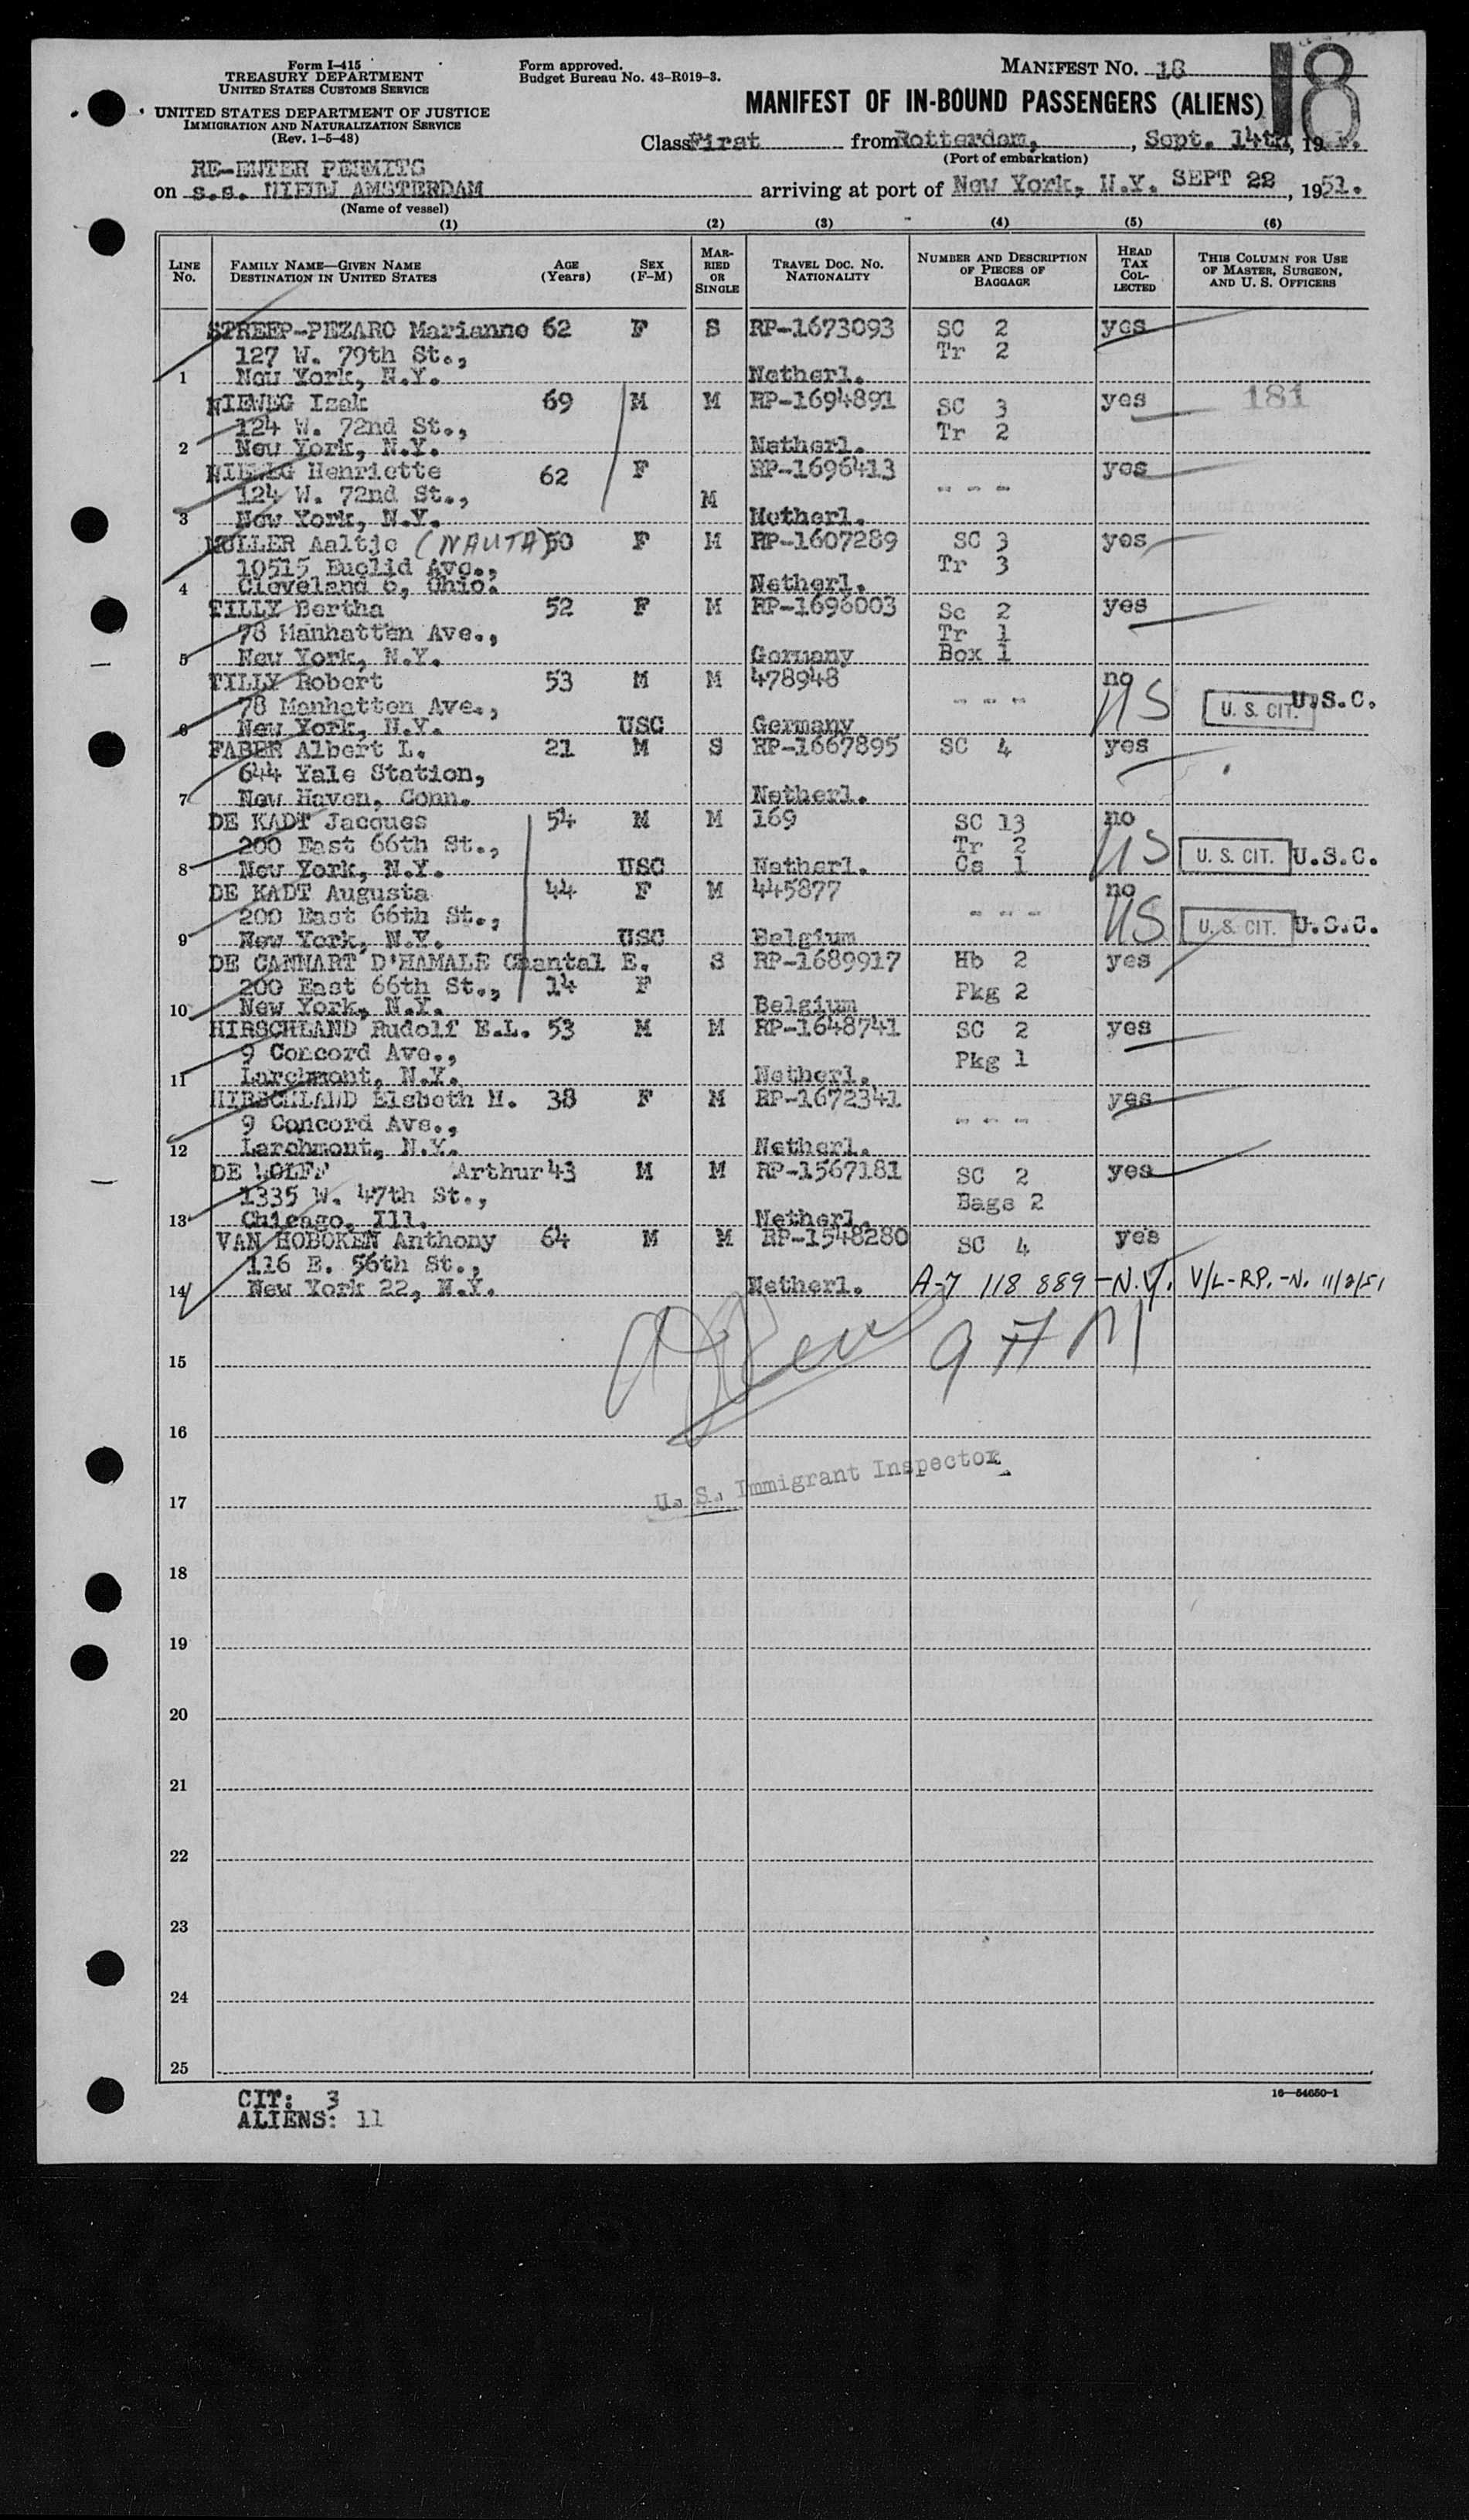 Form I-415
TREASURY DEPARTMENT
UNITED STATES CUSTOMS SERVICE
UNITED STATES DEPARTMENT OF JUSTICE
IMMIGRATION AND NATURALIZATION SERVICE
(Rev. 1-5-48)
Form approved.
Budget Bureau No. 43-R019-3.
MANIFEST NO. 18
18
MANIFEST OF IN-BOUND PASSENGERS (ALIENS)
Class First from Rotterdam, , Sept. 14th, 19
(Port of embarkation)
RE-ENTER PERMITS
on s.s. NIEUW AMSTERDAM arriving at port of New York, N.Y. SEPT 22, 1951.
(Name of vessel)
(1) (2) (3) (4) (5) (6)
LINE No. FAMILY NAME—GIVEN NAME DESTINATION IN UNITED STATES AGE (Years) SEX (F-M) MARRIED OR SINGLE TRAVEL DOC. NO. NATIONALITY NUMBER AND DESCRIPTION OF PIECES OF BAGGAGE HEAD TAX COLLECTED THIS COLUMN FOR USE OF MASTER, SURGEON, AND U. S. OFFICERS
STREEP-PEZARO Marianne 62 F S RP-1673093 SC 2 yes
127 W. 79th St., Tr 2
1 New York, N.Y. Netherl.
NIEWEG Izak 69 M M RP-1694891 SC 3 yes 181
124 W. 72nd St., Tr 2
2 New York, N.Y. Netherl.
NIEWEG Henriette 62 F RP-1696413 - - - yes
124 W. 72nd St., M
3 New York, N.Y. Netherl.
MULLER Aaltje (NAUTA) 50 F M RP-1607289 SC 3 yes
10515 Euclid Ave., Tr 3
4 Cleveland 6, Ohio. Netherl.
TILLY Bertha 52 F M RP-1696003 Sc 2 yes
78 Manhatten Ave., Tr 1
5 New York, N.Y. Germany Box 1
TILLY Robert 53 M M 478948 - - - no
78 Manhatten Ave., US U. S. CIT. U.S.C.
6 New York, N.Y. USC Germany
FABER Albert L. 21 M S RP-1667895 SC 4 yes
644 Yale Station,
7 New Haven, Conn. Netherl.
DE KADT Jacques 54 M M 169 SC 13 no
200 East 66th St., Tr 2 US U. S. CIT. U.S.C.
8 New York, N.Y. USC Netherl. Cs 1
DE KADT Augusta 44 F M 445877 - - - no
200 East 66th St., US U. S. CIT. U.S.C.
9 New York, N.Y. USC Belgium
DE CANNART D'HAMALE Chantal E. S RP-1689917 Hb 2 yes
200 East 66th St., 14 F Pkg 2
10 New York, N.Y. Belgium
HIRSCHLAND Rudolf E.L. 53 M M RP-1648741 SC 2 yes
9 Concord Ave., Pkg 1
11 Larchmont, N.Y. Netherl.
HIRSCHLAND Elsbeth M. 38 F M RP-1672341 - - - yes
9 Concord Ave.,
12 Larchmont, N.Y. Netherl.
DE WOLFF Arthur 43 M M RP-1567181 SC 2 yes
1335 W. 47th St., Bags 2
13 Chicago, Ill. Netherl.
VAN HOBOKEN Anthony 64 M M RP-1548280 SC 4 yes
116 E. 56th St.,
14 New York 22, N.Y. Netherl. A-7 118 889 - N.Y. V/L-RP.-N. 11/2/51
15
16
U. S. Immigrant Inspector
17
18
19
20
21
22
23
24
25
CIT: 3
ALIENS: 11
16—54650-1